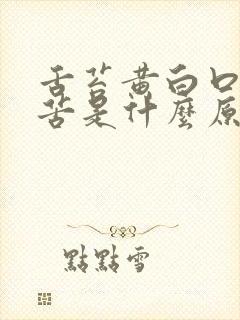 舌苔黄白口
苦是什麼原
點點雪